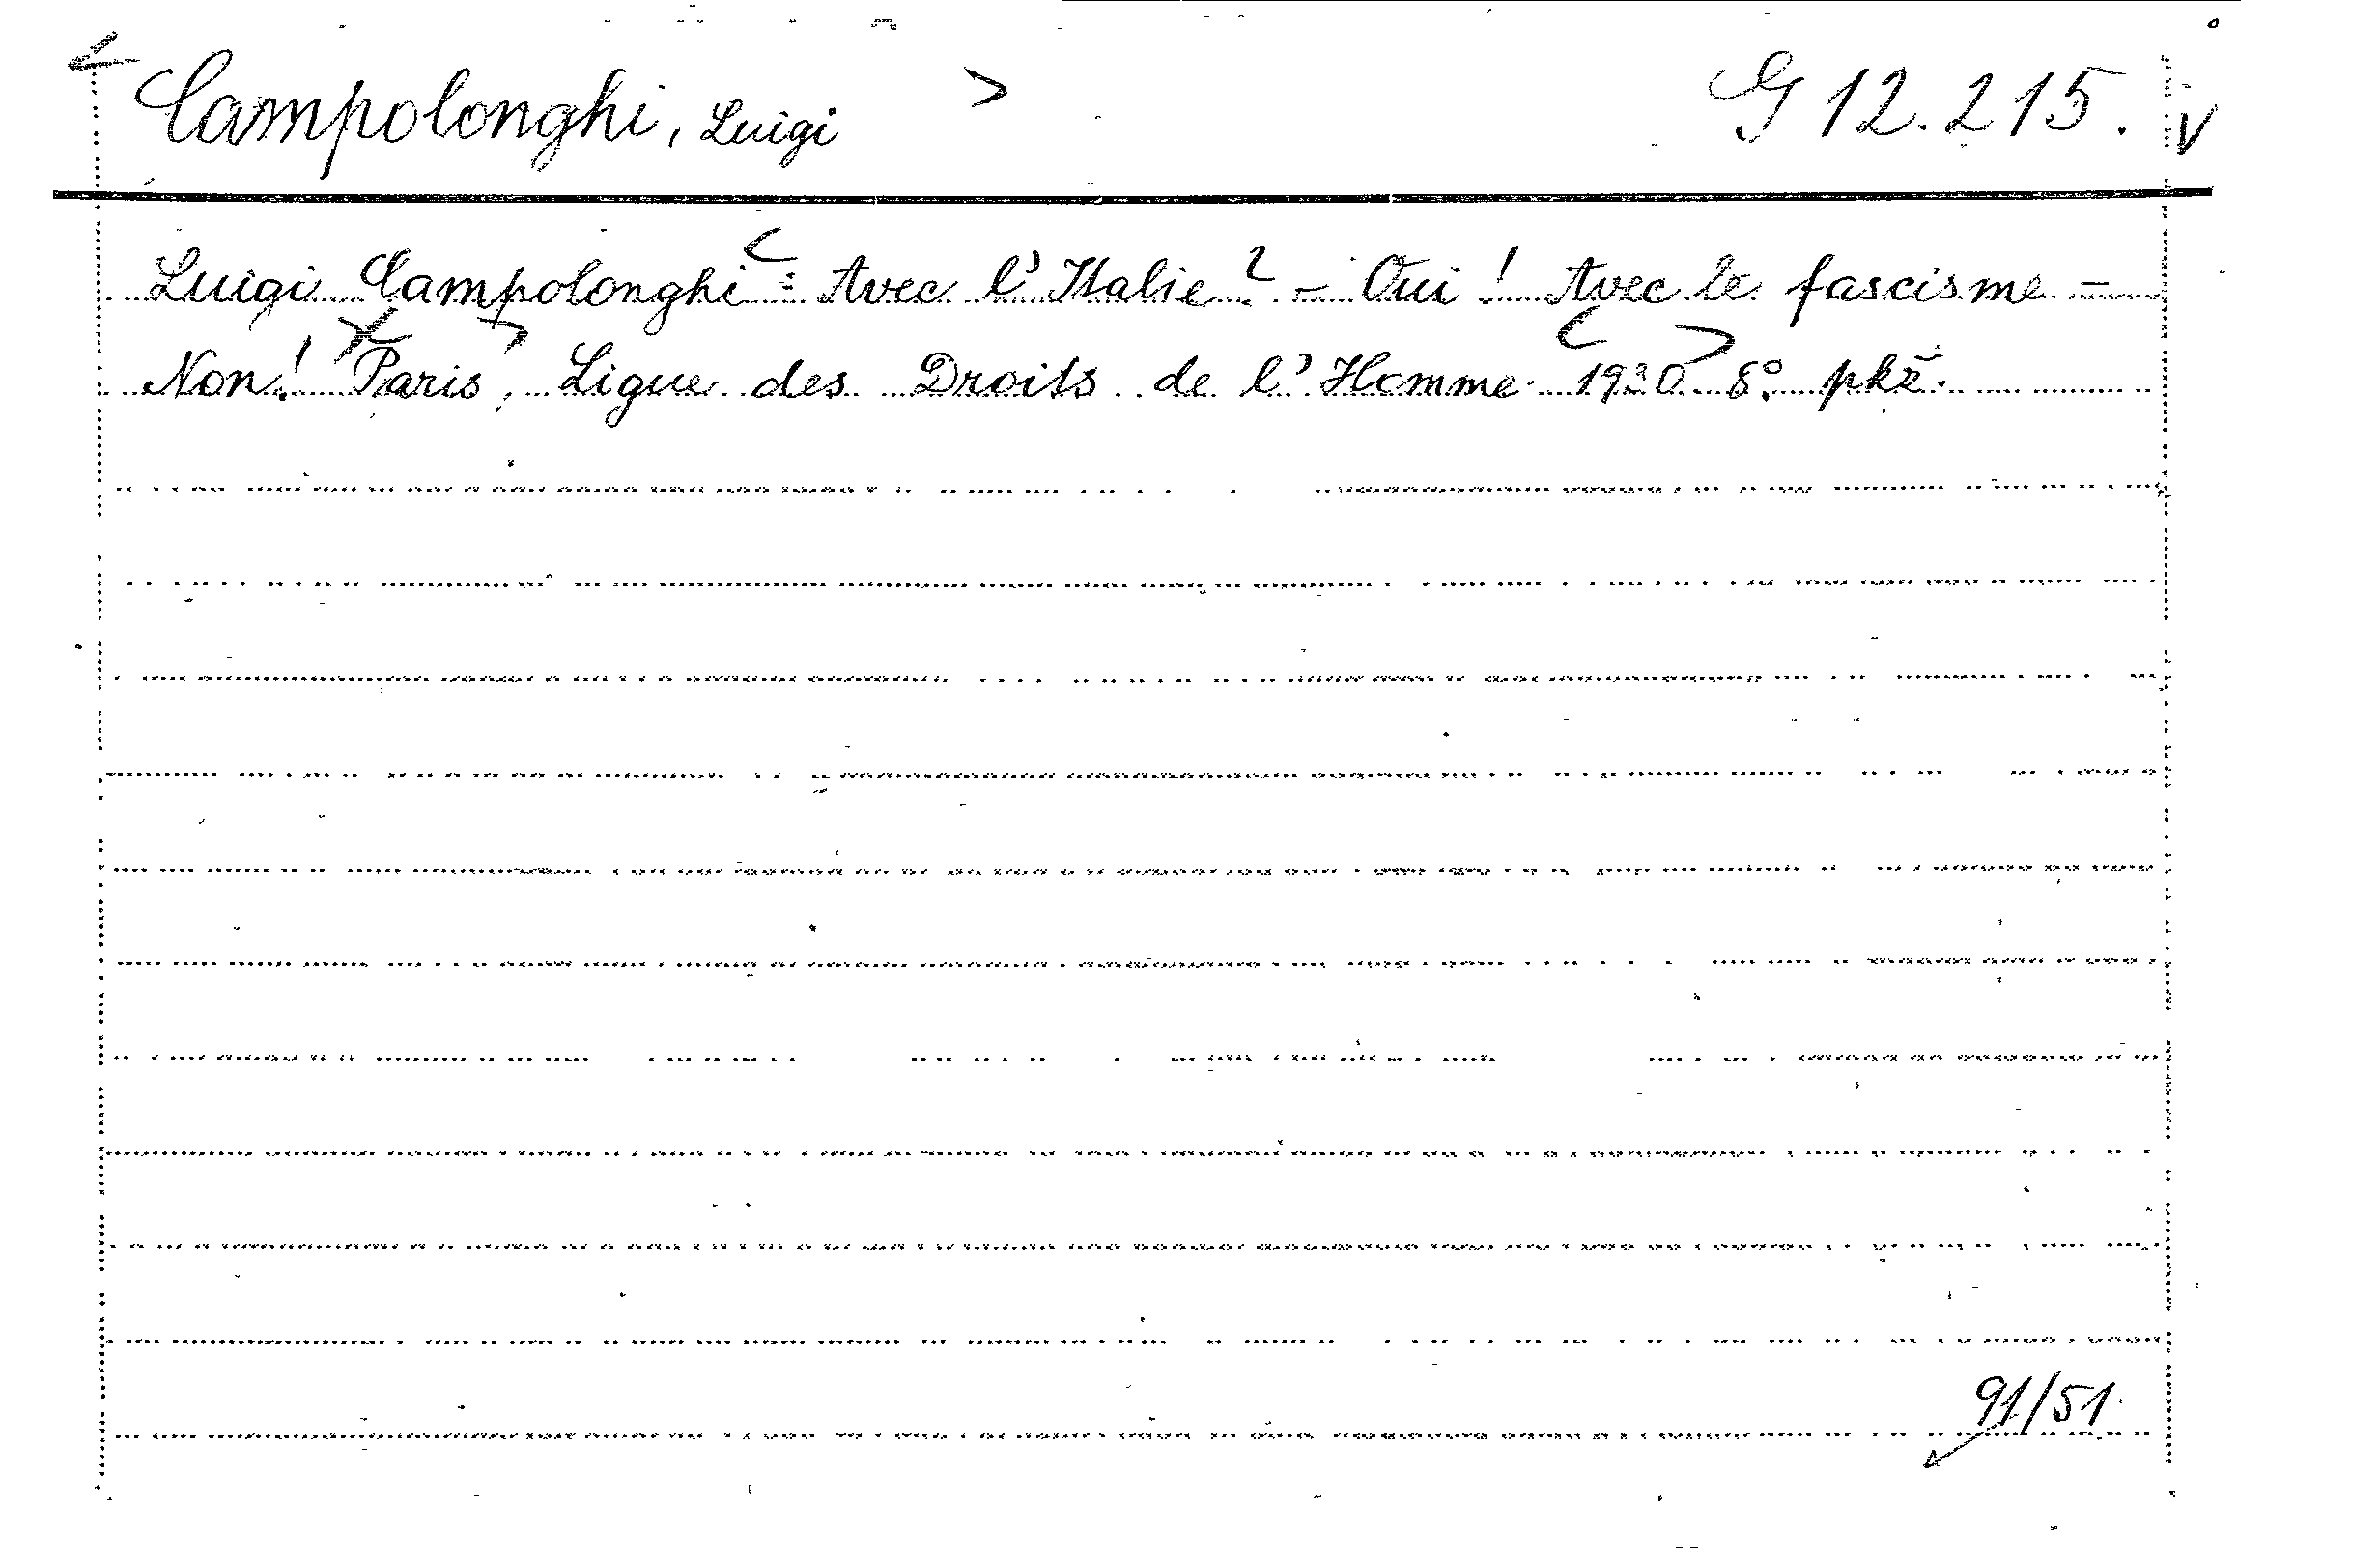 Campolonghi, Luigi G 12.215.
Luigi Campolonghi: Avec l'Italie? - Oui! Avec le fascisme -
Non! Paris, Ligue des Droits de l'Homme 1930 8° pkž.
91/51